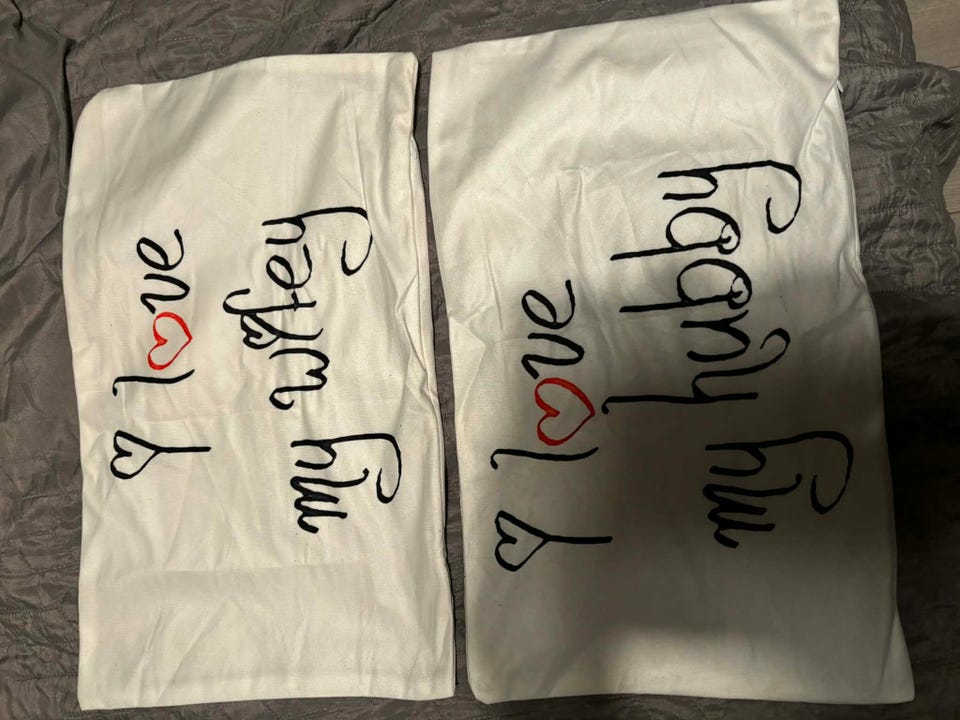 Y love
my wifey
Y love
my hubby